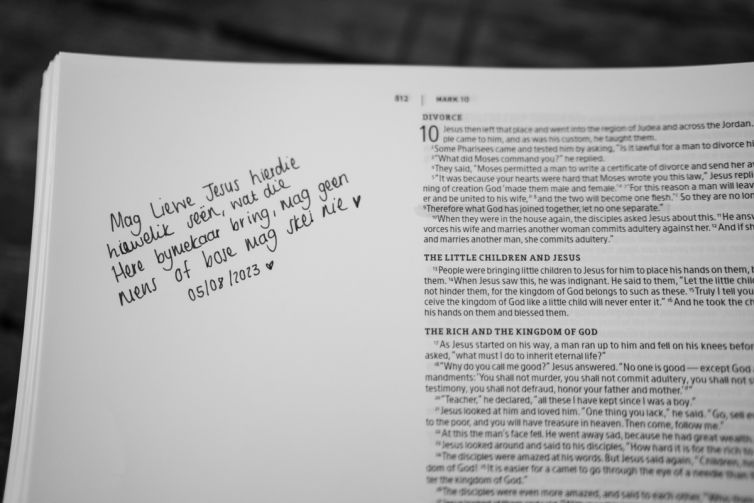 Mag Liewe Jesus hierdie
huwelik seën, wat die
Here bymekaar bring, mag geen
mens of bose mag skei nie ♥
05/08/2023 ♥
512 | MARK 10
DIVORCE
10 Jesus then left that place and went into the region of Judea and across the Jordan.
ple came to him, and as was his custom, he taught them.
²Some Pharisees came and tested him by asking, “Is it lawful for a man to divorce hi
³“What did Moses command you?” he replied.
⁴They said, “Moses permitted a man to write a certificate of divorce and send her a
⁵“It was because your hearts were hard that Moses wrote you this law,” Jesus repli
ning of creation God ‘made them male and female.’ ⁷‘For this reason a man will leav
er and be united to his wife, ⁸and the two will become one flesh.’ So they are no lon
⁹Therefore what God has joined together, let no one separate.”
¹⁰When they were in the house again, the disciples asked Jesus about this. ¹¹He answ
vorces his wife and marries another woman commits adultery against her. ¹²And if sh
and marries another man, she commits adultery.”
THE LITTLE CHILDREN AND JESUS
¹³People were bringing little children to Jesus for him to place his hands on them, b
them. ¹⁴When Jesus saw this, he was indignant. He said to them, “Let the little chil
not hinder them, for the kingdom of God belongs to such as these. ¹⁵Truly I tell you
ceive the kingdom of God like a little child will never enter it.” ¹⁶And he took the ch
his hands on them and blessed them.
THE RICH AND THE KINGDOM OF GOD
¹⁷As Jesus started on his way, a man ran up to him and fell on his knees befor
asked, “what must I do to inherit eternal life?”
¹⁸“Why do you call me good?” Jesus answered. “No one is good — except God
mandments: ‘You shall not murder, you shall not commit adultery, you shall not s
testimony, you shall not defraud, honor your father and mother.’”
²⁰“Teacher,” he declared, “all these I have kept since I was a boy.”
²¹Jesus looked at him and loved him. “One thing you lack,” he said. “Go, sell e
to the poor, and you will have treasure in heaven. Then come, follow me.”
²²At this the man’s face fell. He went away sad, because he had great wealth.
²³Jesus looked around and said to his disciples, “How hard it is for the rich to
²⁴The disciples were amazed at his words. But Jesus said again, “Children, ho
dom of God! ²⁵It is easier for a camel to go through the eye of a needle than
ter the kingdom of God.”
²⁶The disciples were even more amazed, and said to each other, “Who